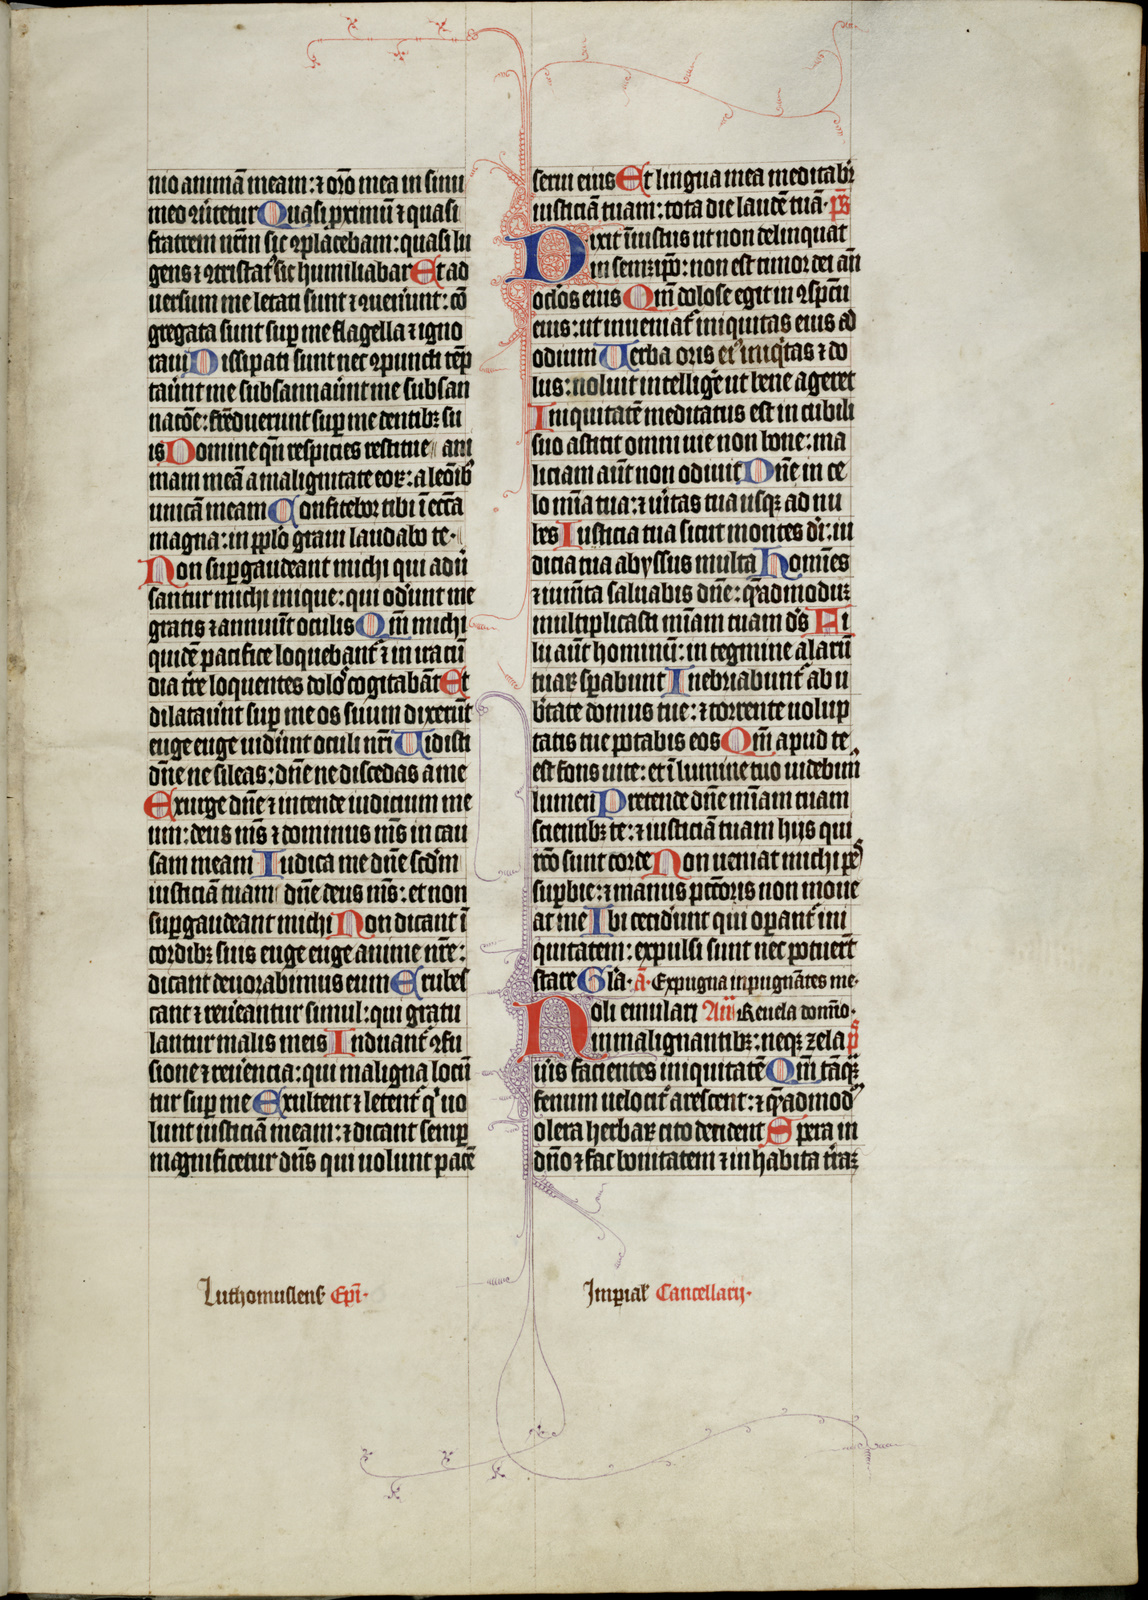 nio animā meam: ⁊ orō mea in sinu
meo ꝯũtetur Quasi ꝓximū ⁊ quasi
fratrem nr̄m sic ꝯplacebam: quasi lu
gens ⁊ ꝯtristat᷒ sic humiliabar Et ad
uersum me letati sunt ⁊ ꝯuenūnt: cō
gregata sunt suꝑ me flagella ⁊ igno
raui Dissipati sunt nec ꝯpuncti tēp
tauūnt me subsannauūnt me subsan
nacōe: frēduerunt suꝑ me dentibꝫ su
is Domine qn̄ respicies restitue ani
mam meā a malignitate eoꝝ: a leōibꝰ
unicā meam Confitebor tibi ī ecc̄ā
magna: in ppl̄o graui laudabo te.
Non suꝑgaudeant michi qui adū
santur michi inique: qui odūnt me
gratis ⁊ annuūt oculis Qm̄ michi
quidē pacifice loquebant᷑ ⁊ in iracū
dia tr̄e loquentes dolo᷒ cogitabāt Et
dilatauūnt suꝑ me os suum dixerūt
euge euge uidūnt oculi nr̄i Uidisti
dn̄e ne sileas: dn̄e ne discedas a me
Exurge dn̄e ⁊ intende iudicium me
um: deus m̄s ⁊ dominus m̄s in cau
sam meam Iudica me dn̄e scdm̄
iusticiā tuam dn̄e deus m̄s: et non
suꝑgaudeant michi Non dicant ī
cordibꝫ suis euge euge anime nr̄e:
dicant deuorabimus eum Erubes
cant ⁊ reūeantur simul: qui gratu
lantur malis meis Induant᷑ ꝯfu
sione ⁊ reūencia: qui maligna locū
tur suꝑ me Exultent ⁊ letent᷑ qͥ uo
lunt iusticiā meam: ⁊ dicant semꝑ
magnificetur dn̄s qui uolunt pacē
serui eius Et lingua mea meditabr̄
iusticiā tuam: tota die laudē tuā. ps̄
Dixit īiustus ut non delinquat
in semꝫip̄o: non est timor dei an̄
oclos eius Qm̄ dolose egit in ꝯspc̄u
eius: ut inueniat᷑ iniquitas eius ad
odium Uerba oris ei᷒ iniqͥtas ⁊ do
lus: noluit intelligē ut bene ageret
Iniquitatē meditatus est in cubili
suo astitit omni uie non bone: ma
liciam aūt non odiuit Dn̄e in ce
lo mīa tua: ⁊ ūitas tua usqꝫ ad nu
bes Iusticia tua sicut montes dī: iu
dicia tua abyssus multa Homīes
⁊ iumēta saluabis dn̄e: qͣdmoduꝫ
multiplicasti mīam tuam ds̄ Fi
lii aūt hominū: in tegmine alarū
tuaꝝ sꝑabunt Inebriabunt᷑ ab u
btate domus tue: ⁊ torrente uolup
tatis tue potabis eos Qm̄ apud te
est fons uite: et ī lumine tuo uidebim᷒
lumen Pretende dn̄e mīam tuam
scientibꝫ te: ⁊ iusticiā tuam hiis qui
rc̄o sunt corde Non ueniat michi pes
suꝑbie: ⁊ manus pctōris non moue
at me Ibi cecidūnt qui oꝑant᷑ ini
quitatem: expulsi sunt nec potuert̄
stare Glā. ā. Expugna inpugnātes me.
Noli emulari An̄ Reuela domīo. ps̄
in malignantibꝫ: neqꝫ zela
ūis facientes iniquitatē Qm̄ tāqꝫ
fenum uelocit᷑ arescent: ⁊ qͣdmod᷒
olera herbaꝝ cito decident Spera in
dn̄o ⁊ fac bonitatem ⁊ inhabita tr̄aꝫ
Luthomuslens̄ Ep̄i.
Imꝑial̄ Cancellarij.